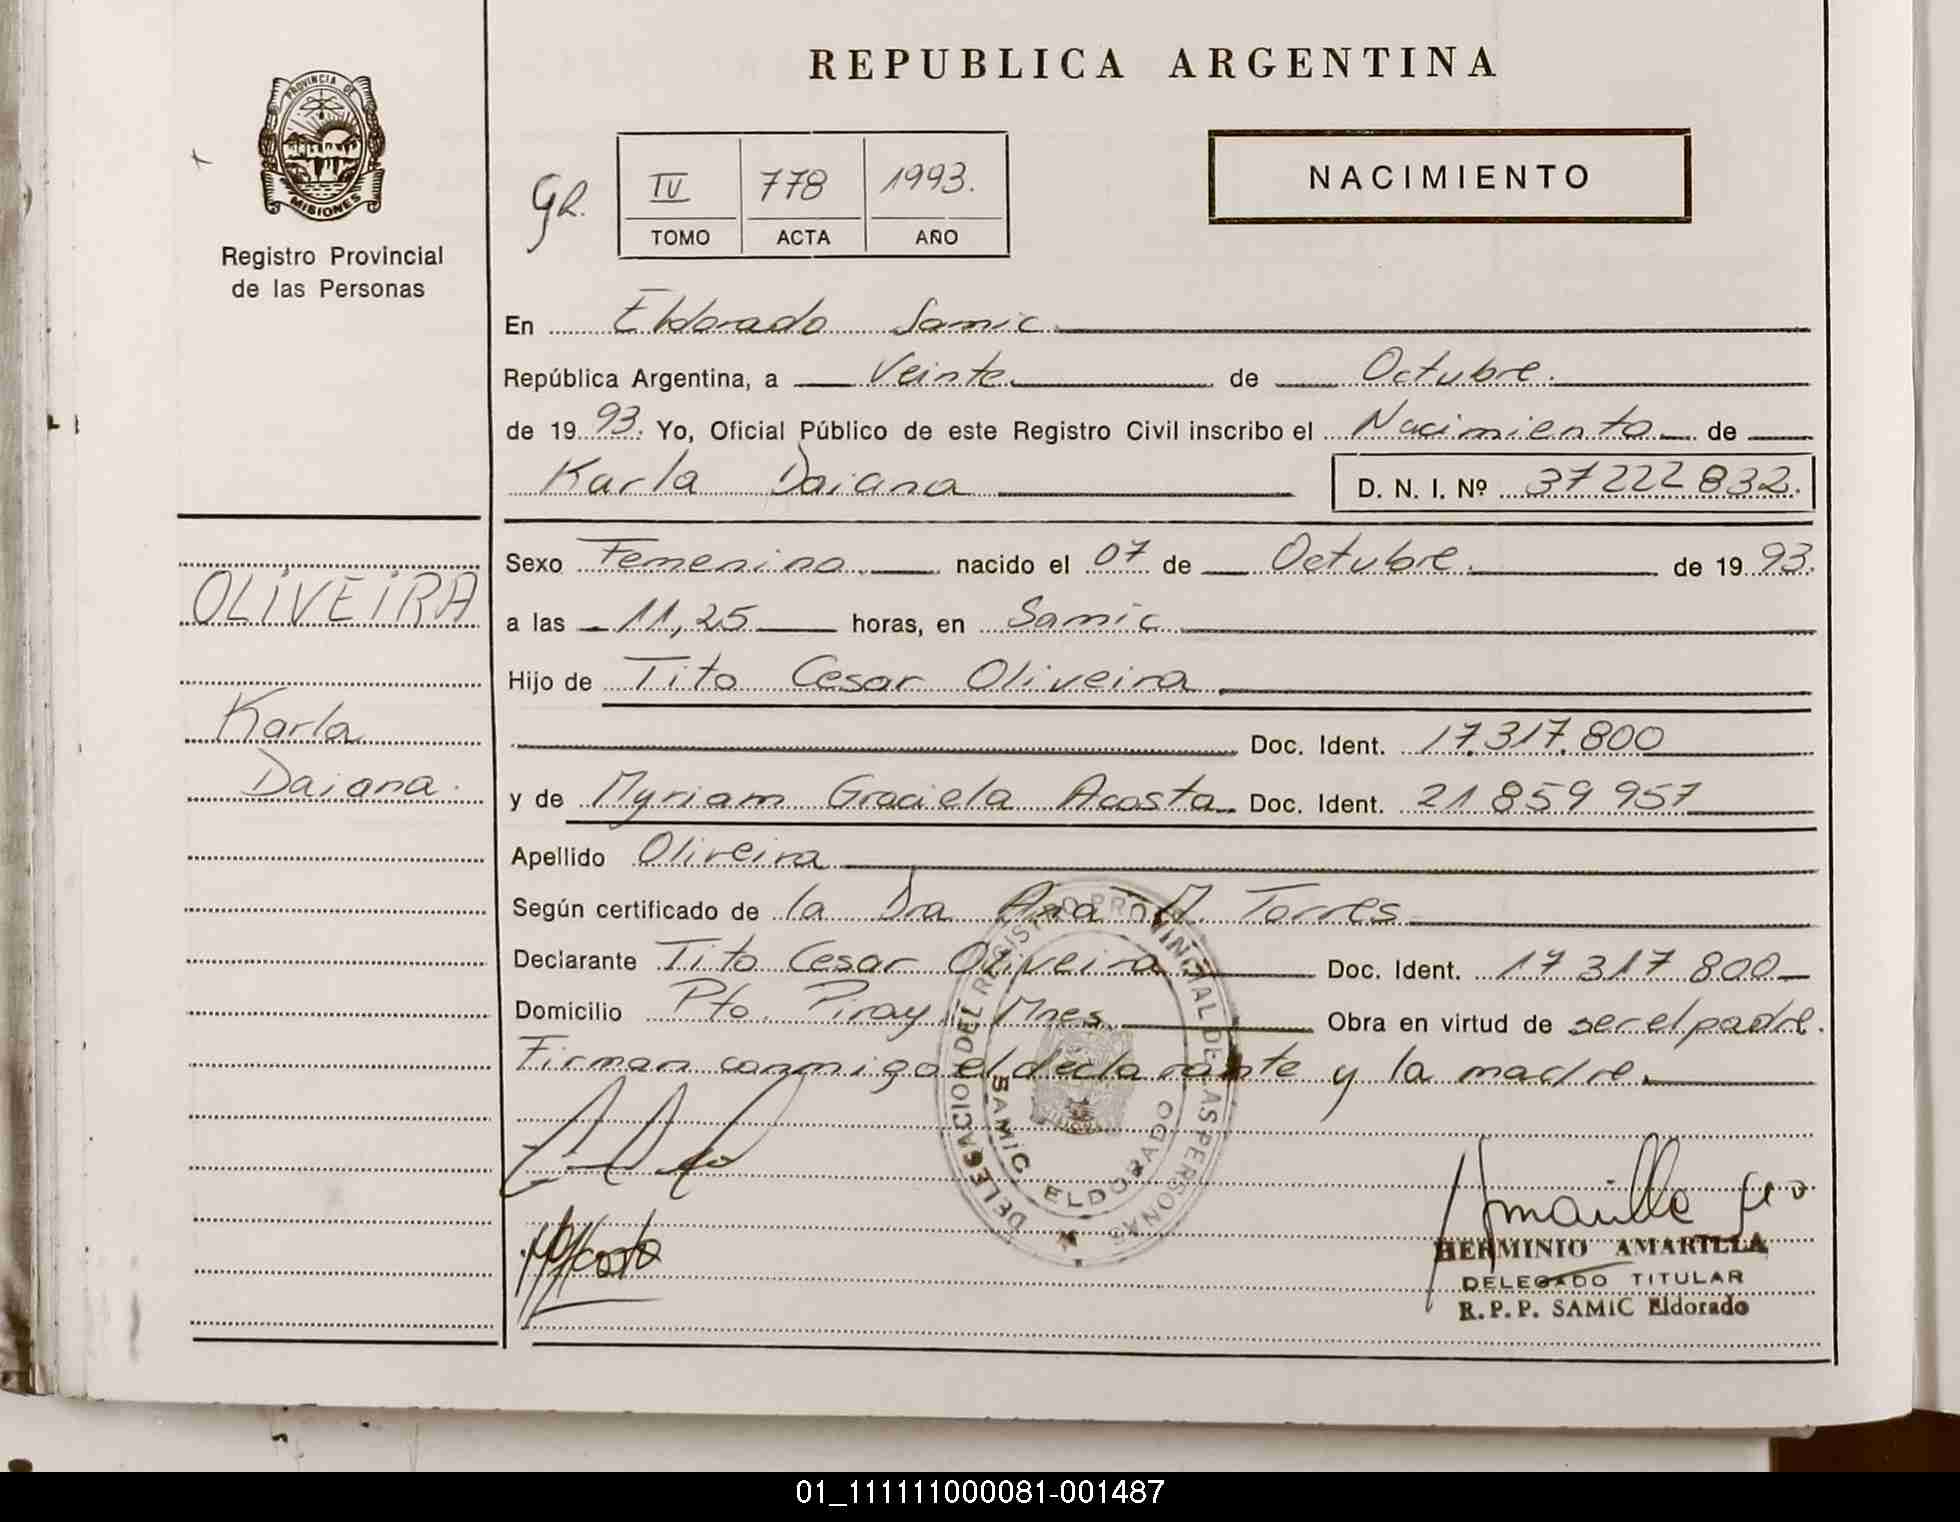 REPUBLICA ARGENTINA
PROVINCIA DE
MISIONES
Registro Provincial
de las Personas
gR.
IV 778 1993.
TOMO ACTA AÑO
NACIMIENTO
En Eldorado Samic
República Argentina, a Veinte de Octubre.
de 1993. Yo, Oficial Público de este Registro Civil inscribo el Nacimiento de
Karla Daiana D. N. I. Nº 37222832.
Sexo Femenino nacido el 07 de Octubre. de 1993.
a las 11,25 horas, en Samic
Hijo de Tito Cesar Oliveira
Doc. Ident. 17.317.800
y de Myriam Graciela Acosta Doc. Ident. 21 859 957
Apellido Oliveira
Según certificado de la Dra Ana M. Torres
Declarante Tito Cesar Oliveira Doc. Ident. 17 317 800
Domicilio Pto. Piray Mnes. Obra en virtud de ser el padre.
Firman conmigo el declarante y la madre.
OLIVEIRA
Karla
Daiana.
DELEGACION DEL REGISTRO PROVINCIAL DE LAS PERSONAS
SAMIC ELDORADO
MAcosta
HERMINIO AMARILLA
DELEGADO TITULAR
R.P.P. SAMIC Eldorado
01_111111000081-001487